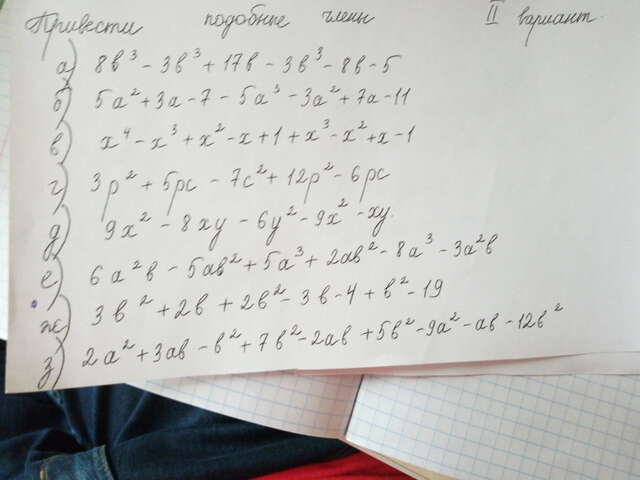 Привести подобные члены II вариант.
а) 8в³ - 3в³ + 17в - 3в³ - 8в - 5
б) 5а² + 3а - 7 - 5а³ - 3а² + 7а - 11
в) x⁴ - x³ + x² - x + 1 + x³ - x² + x - 1
г) 3p² + 5pc - 7c² + 12p² - 6pc
д) 9x² - 8xy - 6y² - 9x² - xy.
е) 6а²в - 5ав² + 5а³ + 2ав² - 8а³ - 3а²в
ж) 3в² + 2в + 2в² - 3в - 4 + в² - 19
з) 2а² + 3ав - в² + 7в² - 2ав + 5в² - 9а² - ав - 12в²